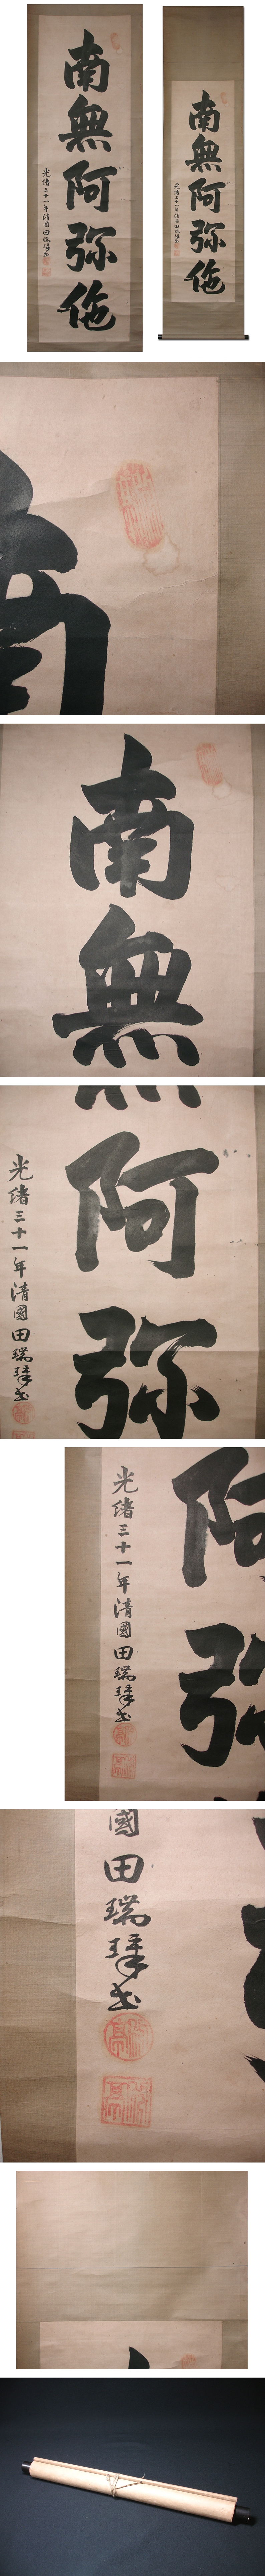 南無阿弥陀
光緒三十一年清國田瑞㻮書
南無阿弥陀
光緒三十一年清國田瑞㻮書
南
南
無
無
阿
弥
光緒三十一年清國田瑞㻮書
阿
弥
光緒三十一年清國田瑞㻮書
國田瑞㻮書